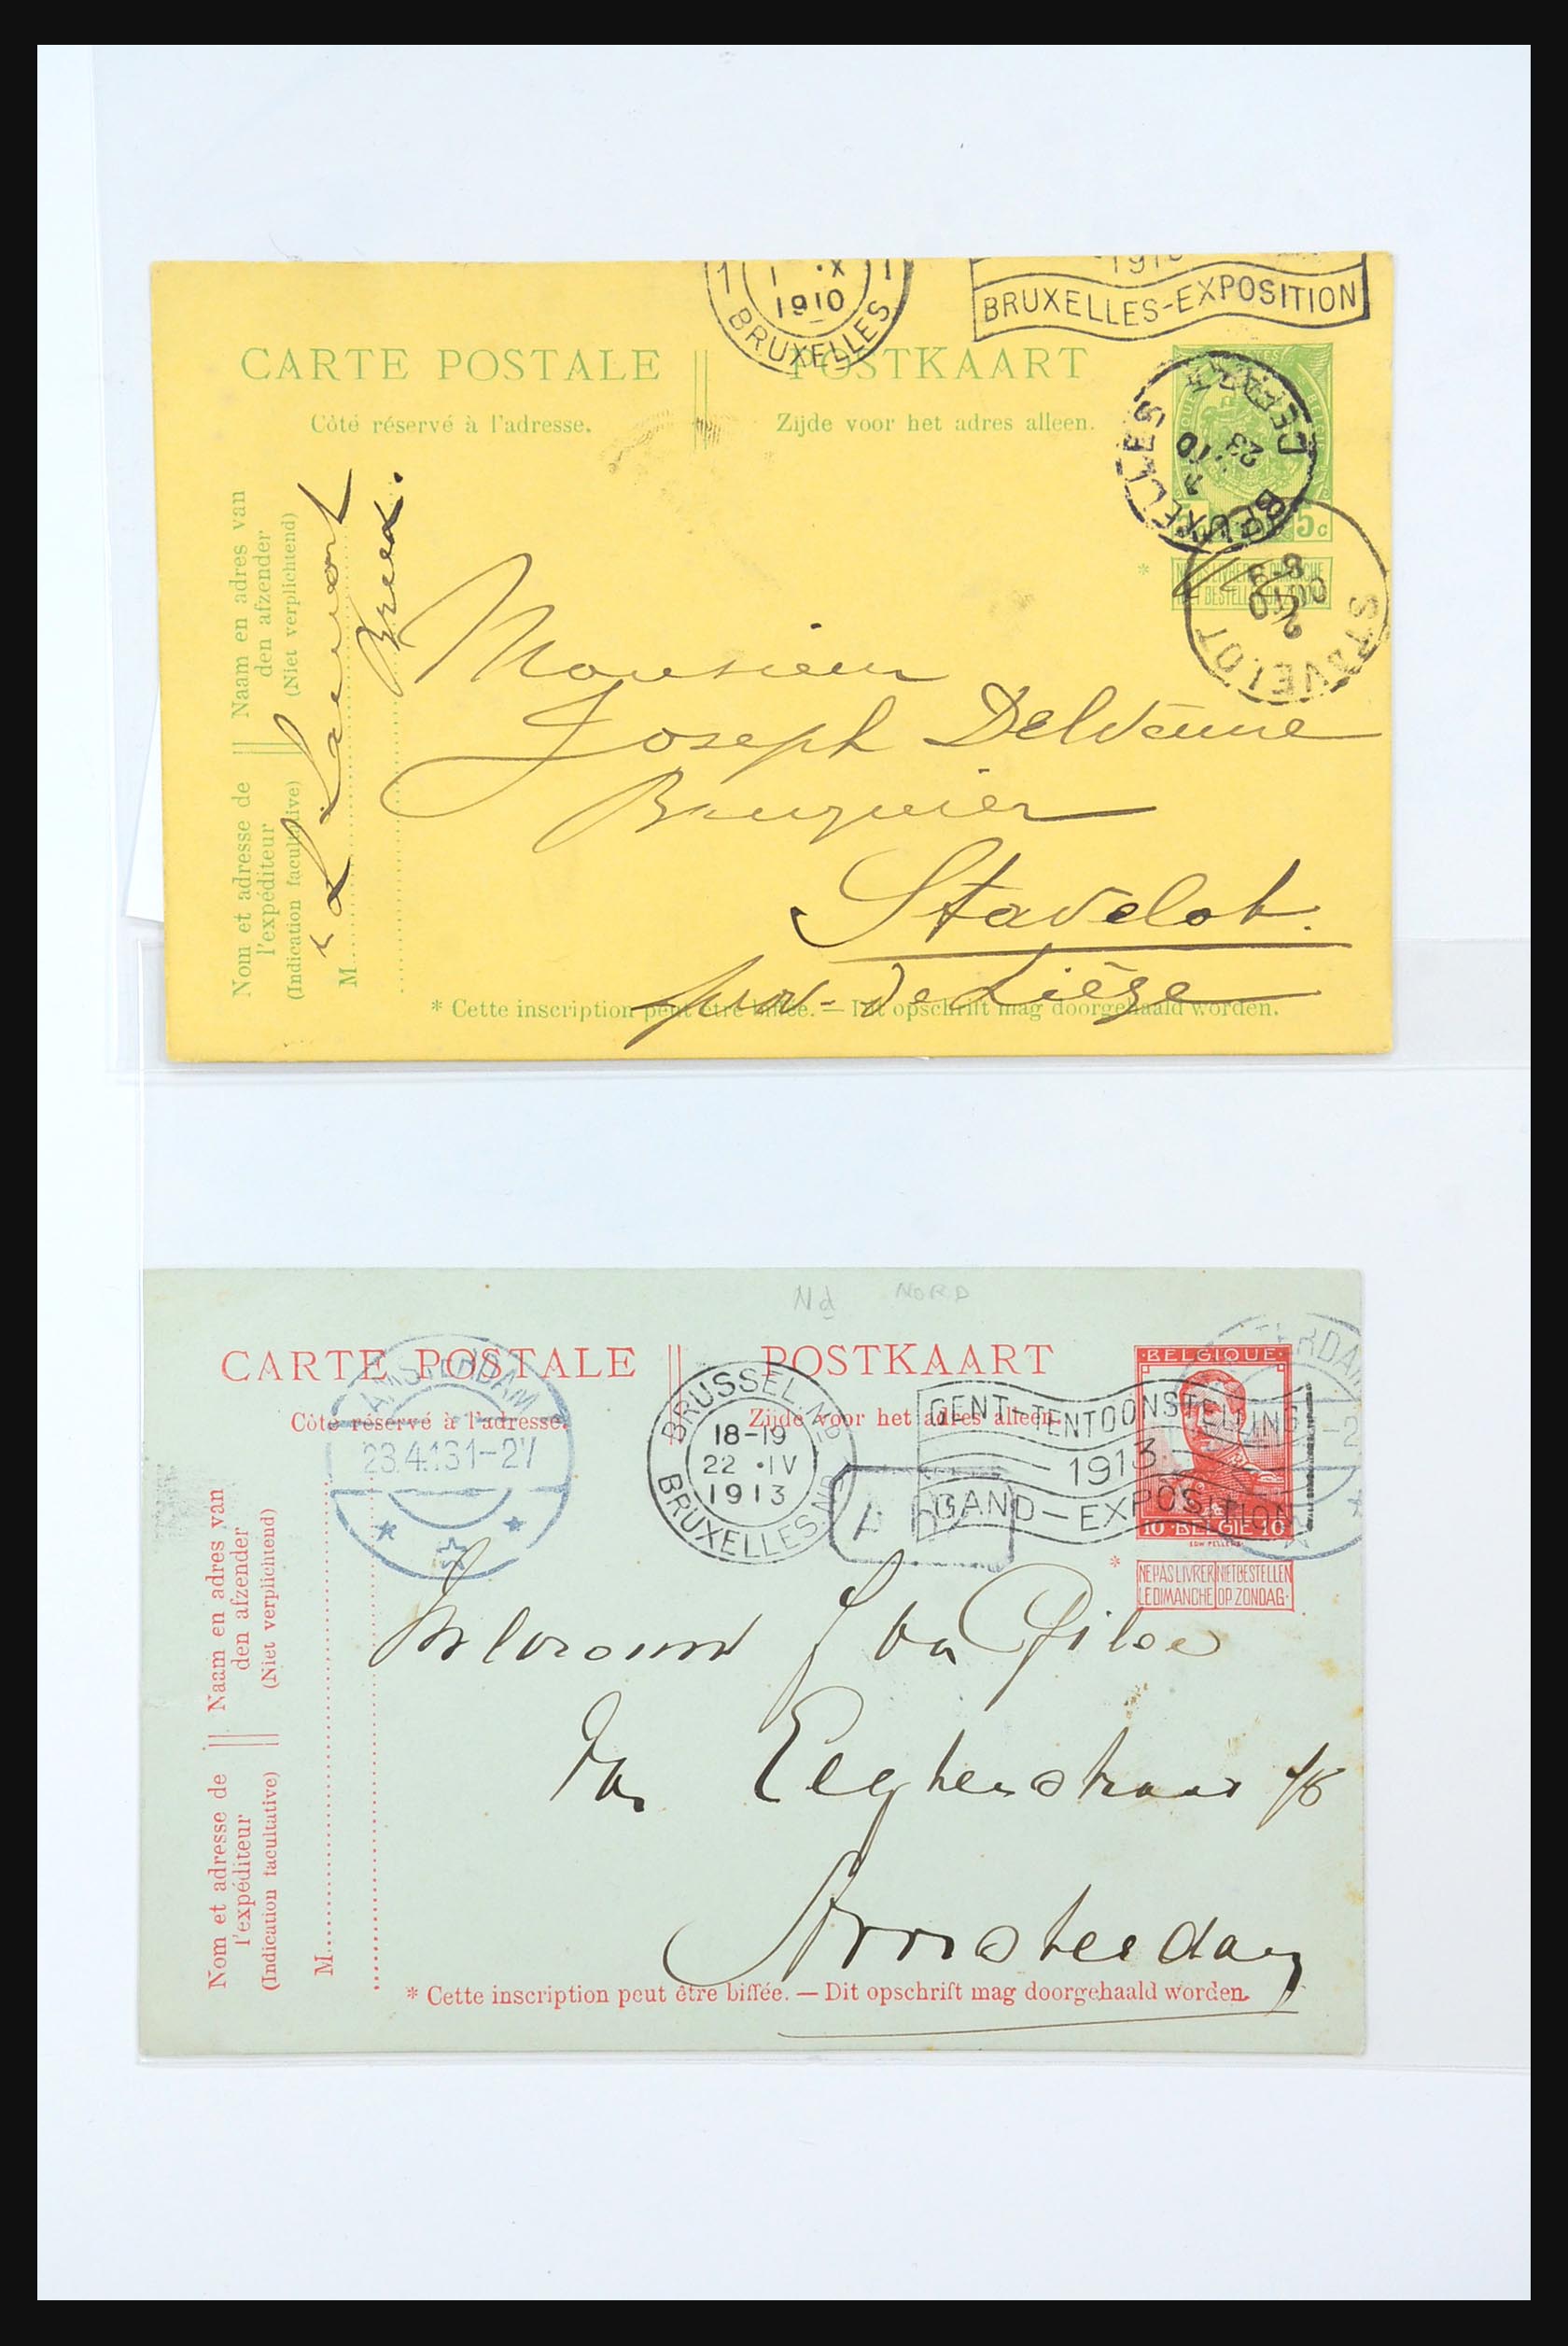 1 1 ·X 1
1910
BRUXELLES
191
BRUXELLES-EXPOSITION
CARTE POSTALE POSTKAART
Côté réservé à l'adresse. Zijde voor het adres alleen.
BRUXELLES
23
10
5c
* NE PAS LIVRER LE DIMANCHE
NIET BESTELLEN OP ZONDAG
8-9
2 OCT
10
STAVELOT
Naam en adres van
den afzender
(Niet verplichtend)
Nom et adresse de
l'expéditeur
(Indication facultative)
M
Monsieur
Joseph
Banquier
Stavelot.
prov = de Liége
* Cette inscription peut être biffée. — Dit opschrift mag doorgehaald worden.
Nd NORD
CARTE POSTALE POSTKAART
Côté réservé à l'adresse. Zijde voor het adres alleen.
AMSTERDAM
23.4.13 1-2V
BRUSSEL.ND
18-19
22 ·IV
1913
BRUXELLES.ND
GENT-TENTOONSTELLING
1913
GAND-EXPOSITION
A
BELGIQUE
10 BELGIE 10
TERDAM
-2
* NE PAS LIVRER LE DIMANCHE
NIET BESTELLEN OP ZONDAG.
Naam en adres van
den afzender
(Niet verplichtend)
Nom et adresse de
l'expéditeur
(Indication facultative)
M
Mevrouw J van Gilse
Van Eeghenstraat
Amsterdam
* Cette inscription peut être biffée. — Dit opschrift mag doorgehaald worden.